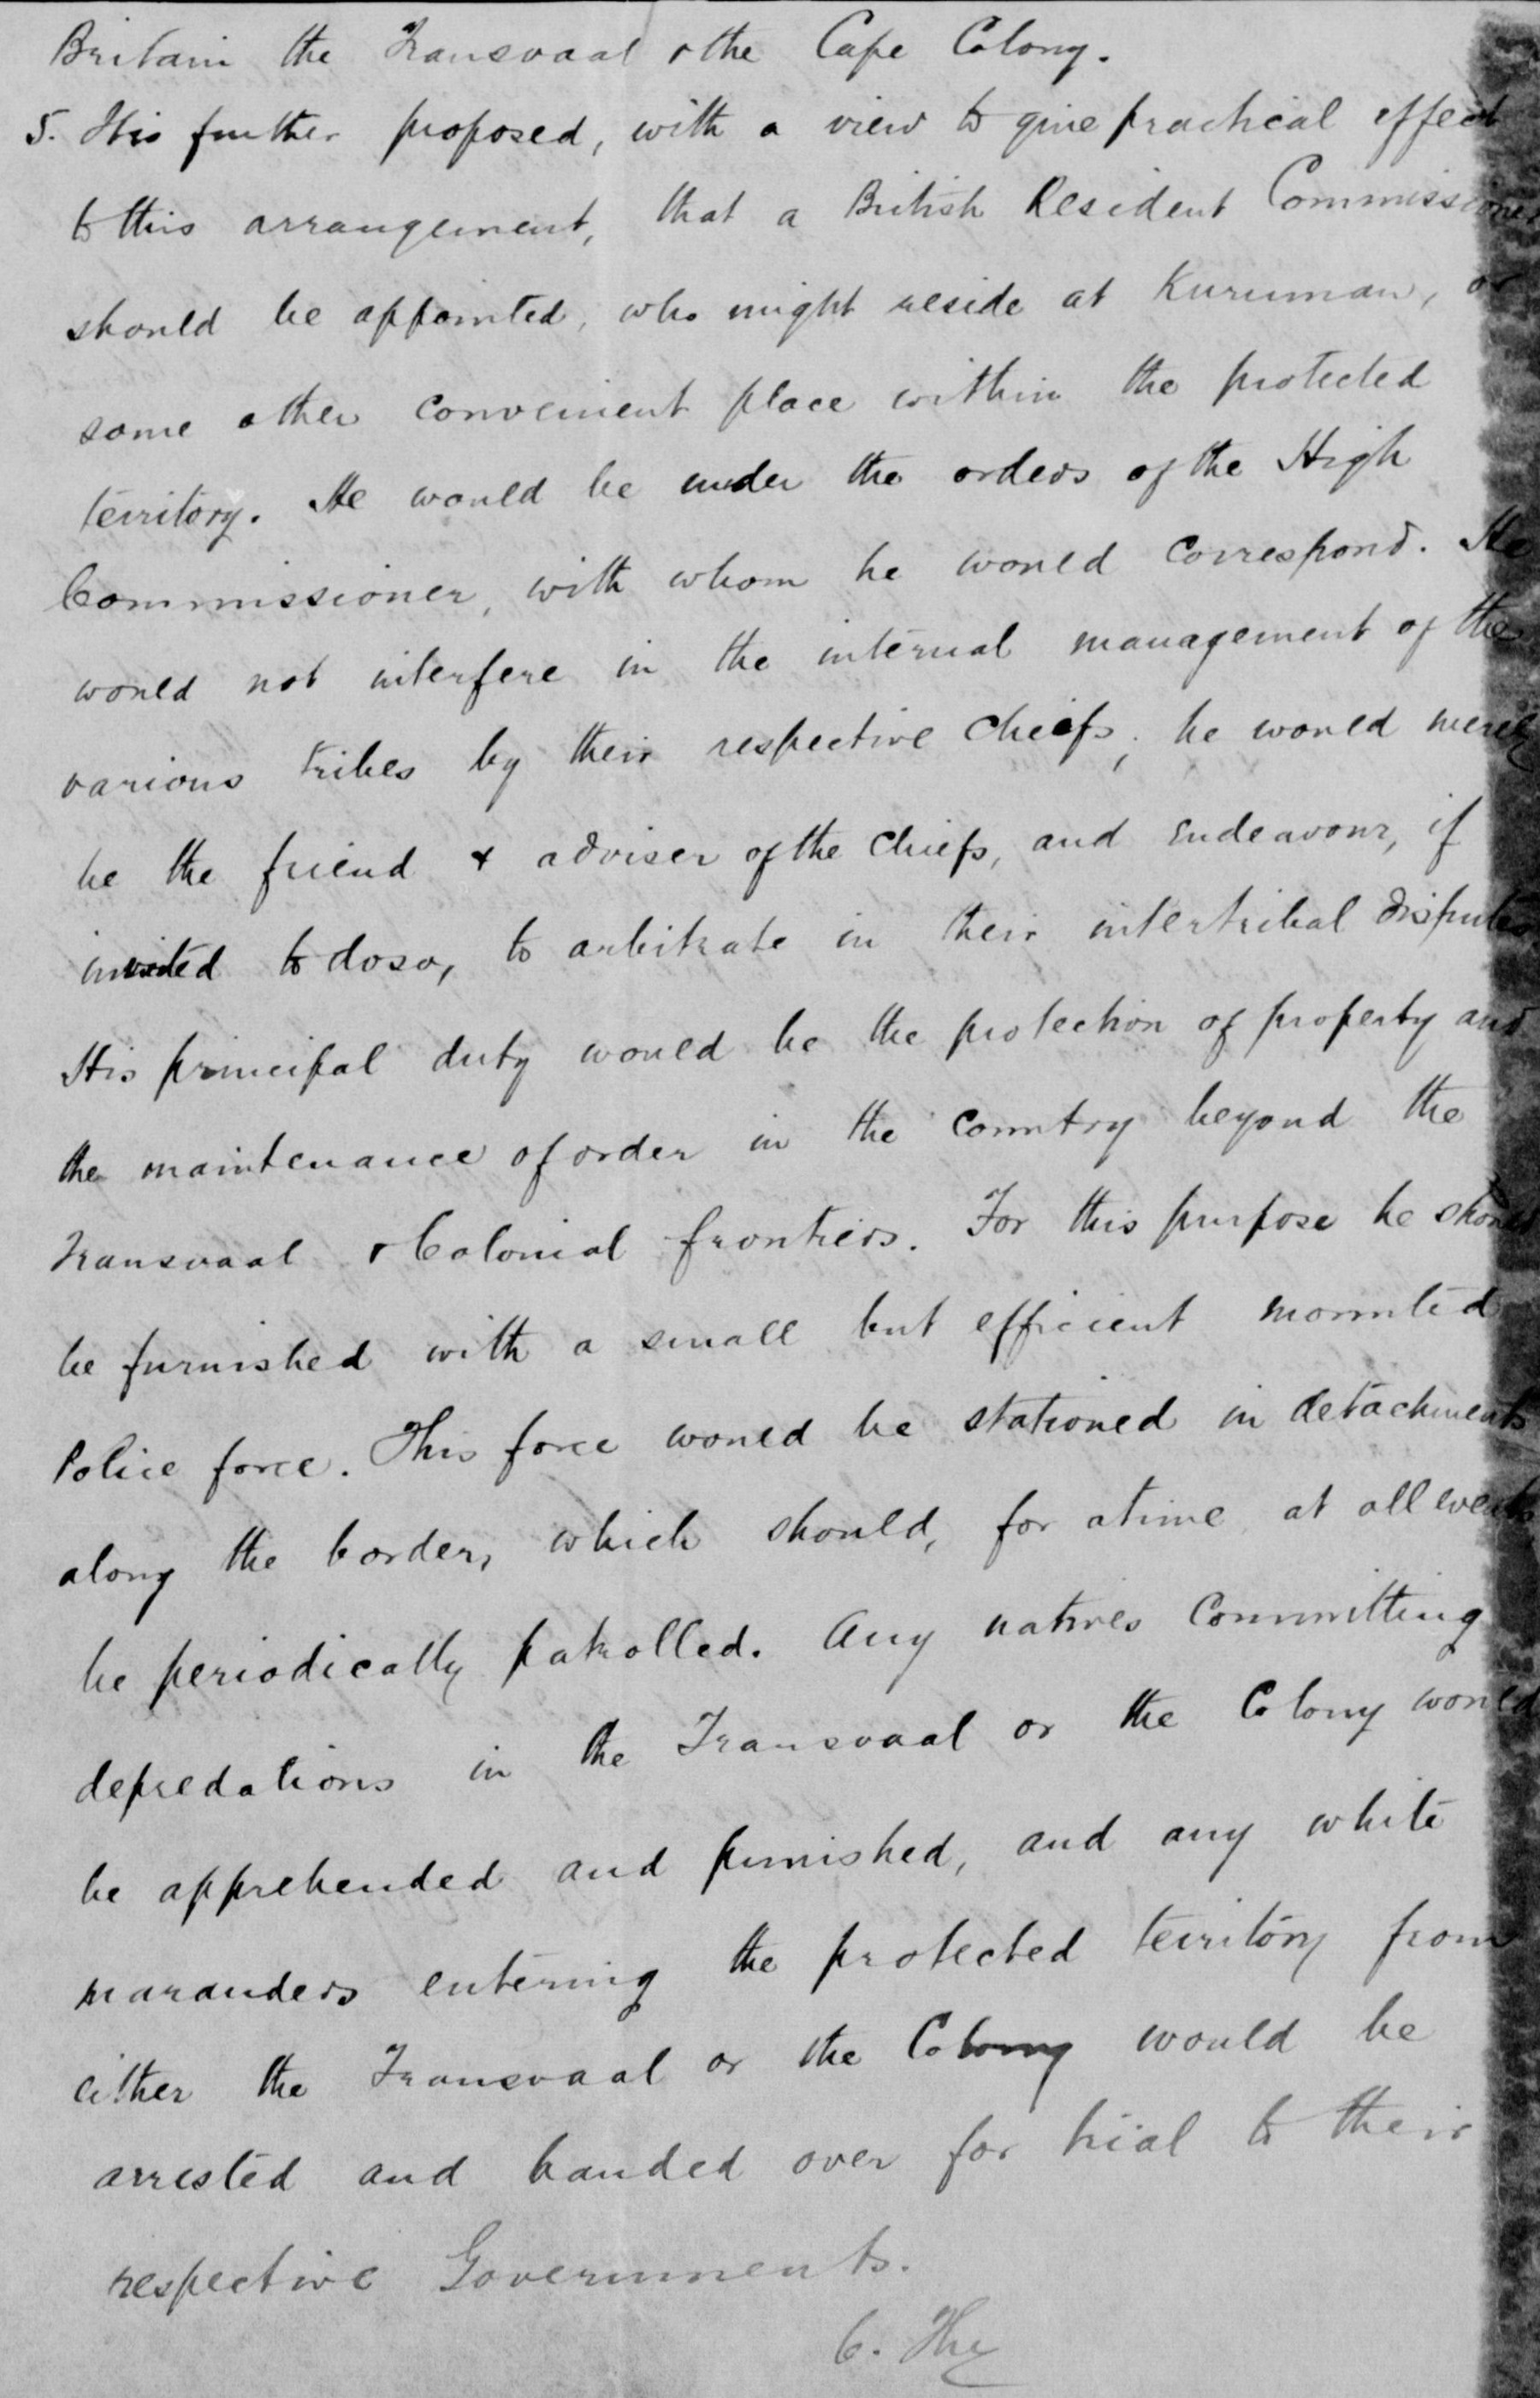 Britain the Transvaal & the Cape Colony.
5. It is further proposed, with a view to give practical effect
to this arrangement, that a British Resident Commissioner
should be appointed, who might reside at Kuruman, or
some other convenient place within the protected
territory. He would be under the orders of the High
Commissioner, with whom he would correspond. He
would not interfere in the internal management of the
various tribes by their respective chiefs; he would merely
be the friend & adviser of the chiefs, and endeavour, if
invited to do so, to arbitrate in their intertribal disputes
His principal duty would be the protection of property and
the maintenance of order in the country beyond the
Transvaal & Colonial frontiers. For this purpose he should
be furnished with a small but efficient mounted
Police force. This force would be stationed in detachments
along the border, which should, for a time, at all events
be periodically patrolled. Any natives committing
depredations in the Transvaal or the Colony would
be apprehended and punished, and any white
marauders entering the protected territory from
either the Transvaal or the Colony would be
arrested and handed over for trial to their
respective Governments.
6. The